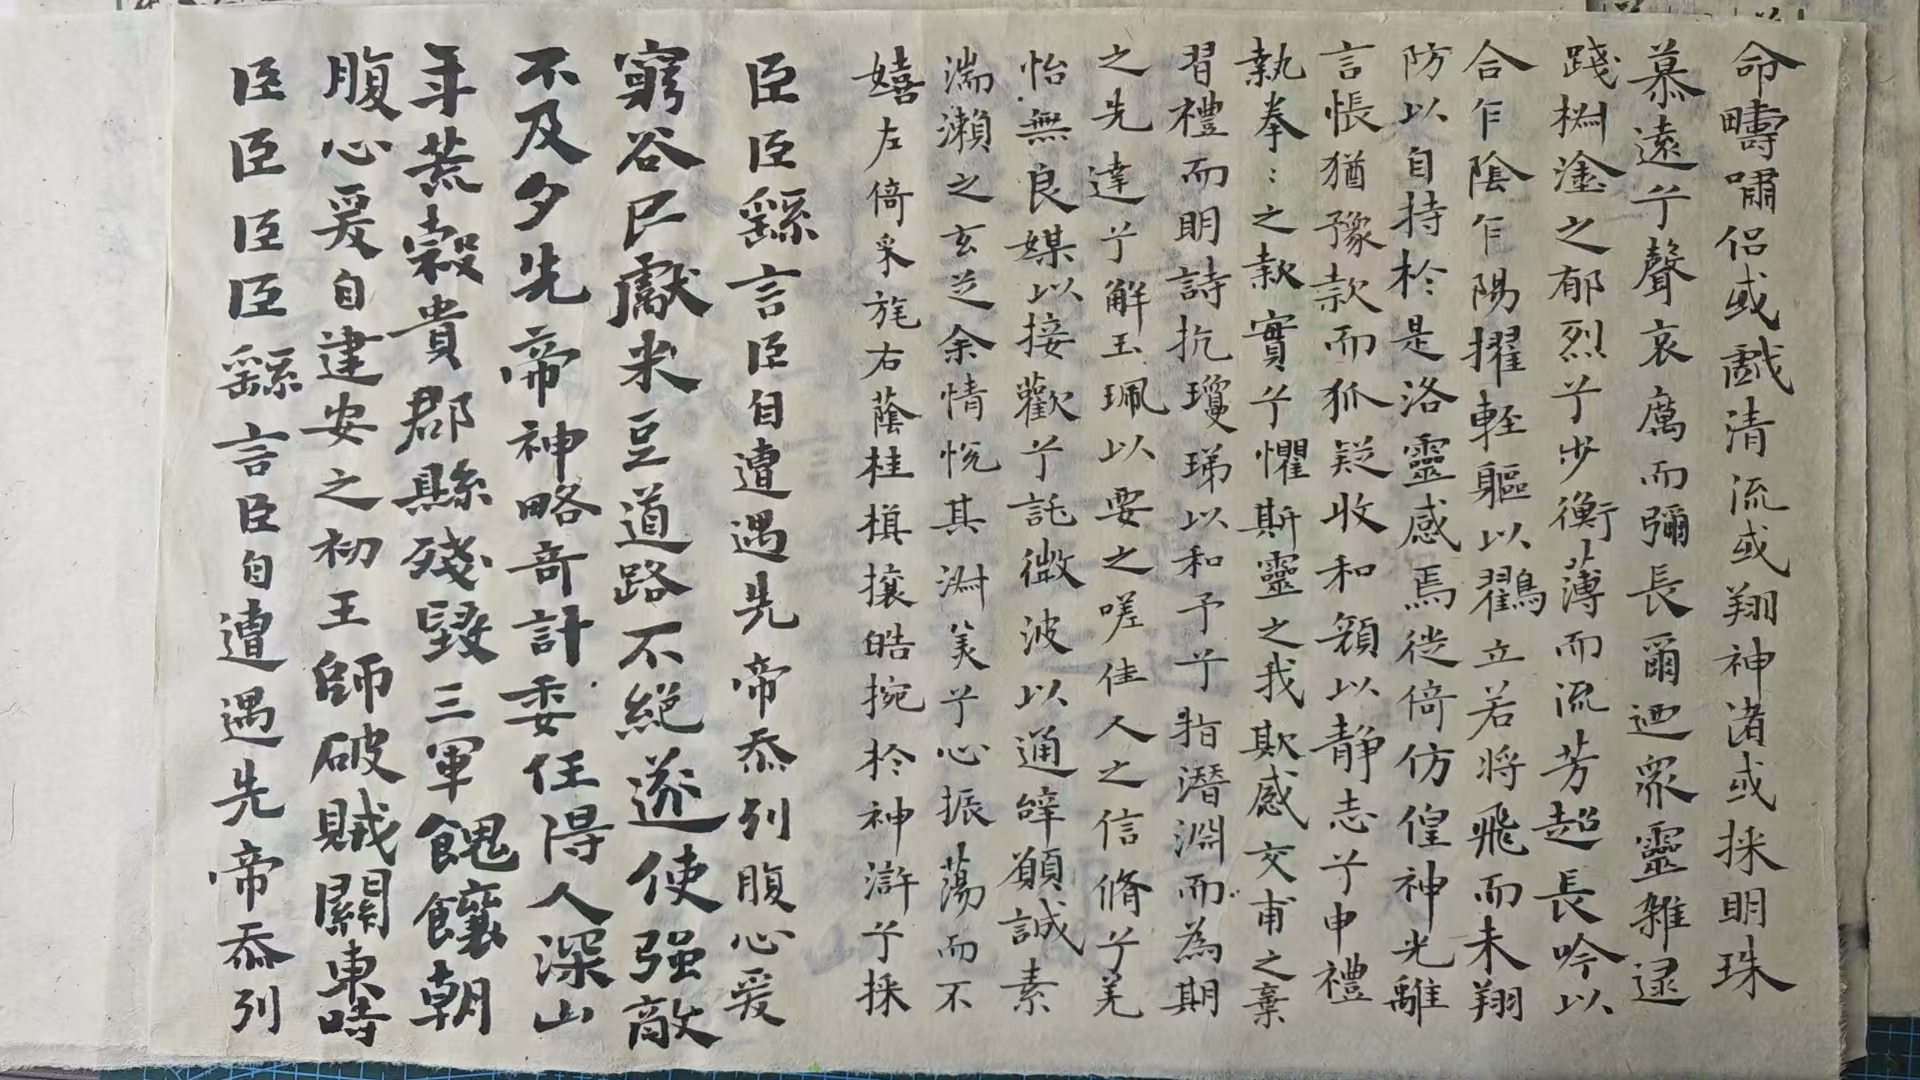 命疇嘯侶或戲清流或翔神渚或採明珠
慕遠兮聲哀厲而彌長爾迺眾靈雜逯
踐椒塗之郁烈兮步衡薄而流芳超長吟以
合乍陰乍陽擢輕軀以鶴立若將飛而未翔
防以自持於是洛靈感焉徙倚仿偟神光離
言悵猶豫款而狐疑收和顏以靜志兮申禮
執拳:之款實兮懼斯靈之我欺感交甫之棄
習禮而明詩抗瓊珶以和予兮指潛淵而為期
之先達兮解玉珮以要之嗟佳人之信脩兮羌
怡無良媒以接歡兮託微波以通辭願誠素
湍瀨之玄芝余情悅其淑美兮心振蕩而不
嬉左倚采旄右蔭桂旗攘皓捥於神滸兮採
臣臣繇言臣自遭遇先帝忝列腹心爰
窮谷民獻米豆道路不絕遂使强敵
不及夕先帝神略奇計委任得人深山
年荒穀貴郡縣殘毀三軍餽饟朝
腹心爰自建安之初王師破賊關東時
臣臣臣臣繇言臣自遭遇先帝忝列